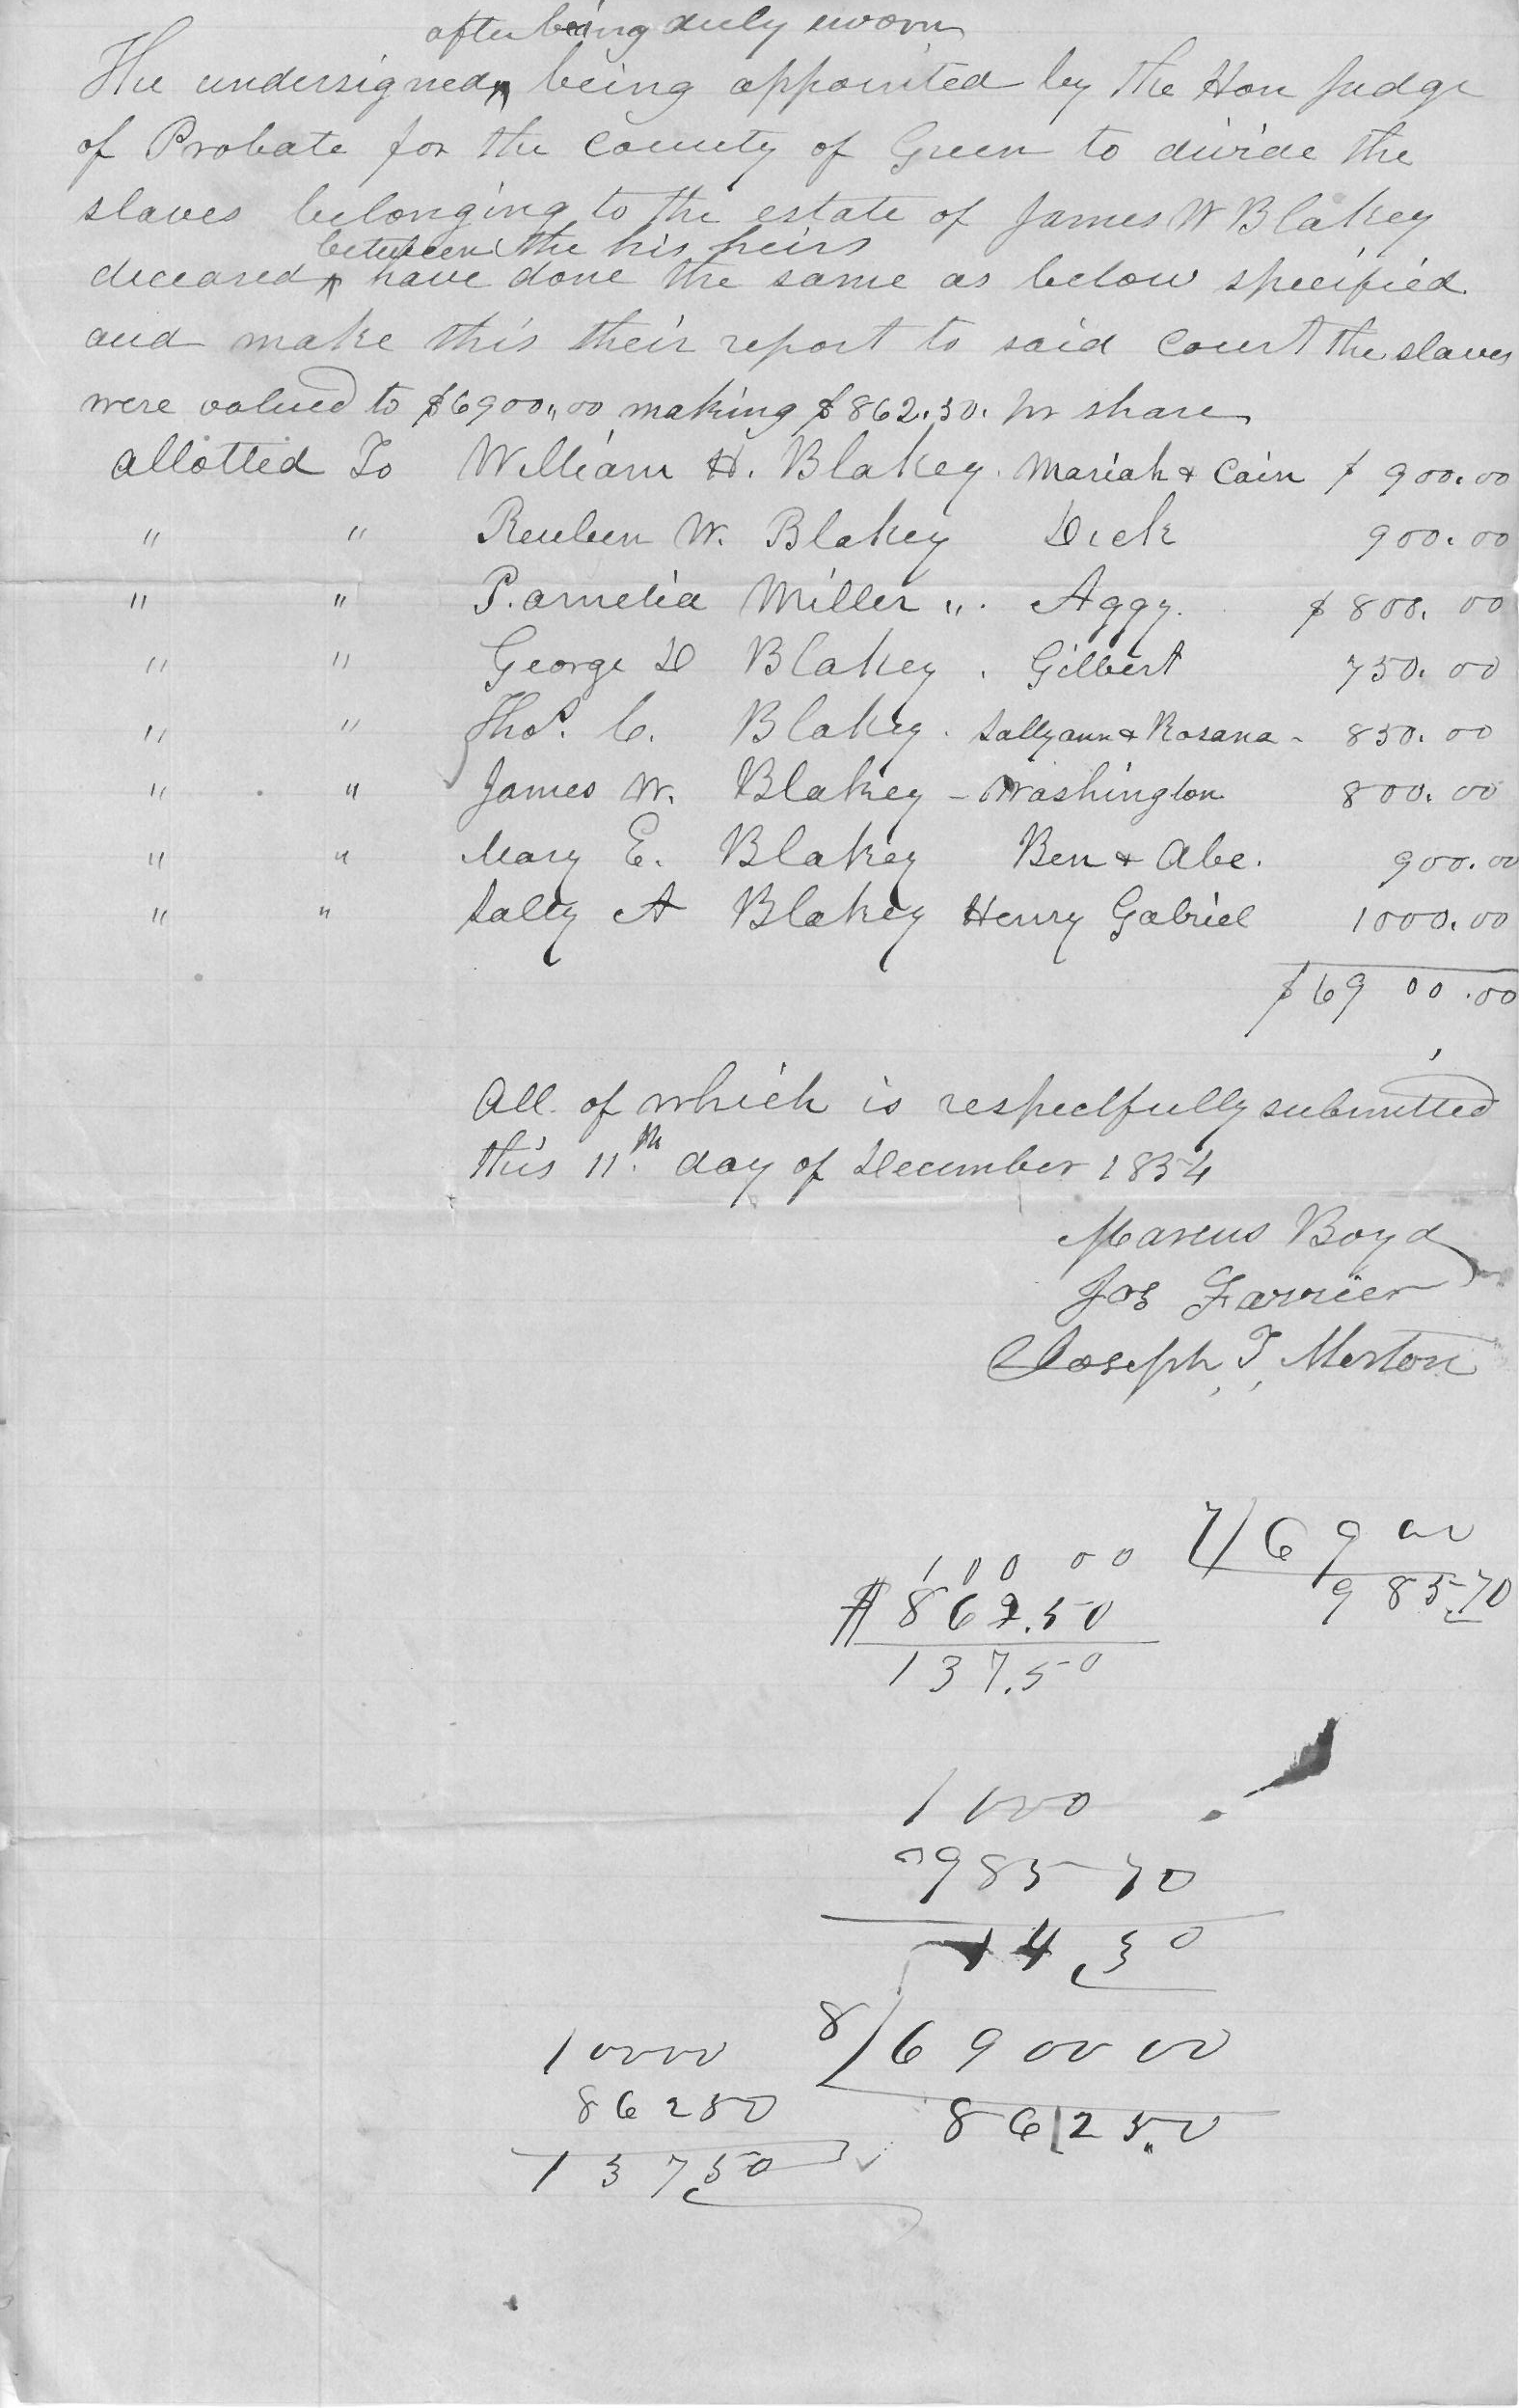 after being duly sworn
The undersigned, being appointed by the Hon Judge
of Probate for the County of Green to divide the
slaves belonging to the estate of James W Blakey
between the his heirs
deceased, have done the same as below specified
and make this their report to said Court the slaves
were valued to $6900,,00 making $862.50. pr share
allotted To William H. Blakey. Mariah & Cain $ 900.00
" " Reuben W. Blakey Dick 900.00
" " P. amelia Miller ". Aggy. $ 800. 00
" " George D Blakey . Gilbert 750. 00
" " Thos. C. Blakey. Sallyann & Rosana - 850. 00
" " James W. Blakey - Washington 800. 00
" " Mary E. Blakey Ben & Abe. 900.00
" " Sally A Blakey Henry Gabriel 1000.00
$ 69 00 .00
All of which is respectfully submitted
this 11th day of December 1854
Marcus Boyd
Jos Farrier
Joseph T. Morton
7/ 6 9 00
985 70
100 00
$ 862.50
137.50
1000
985 70
14 30
8/ 6 9 00 00
86|2 5.0
10000
86250
13750